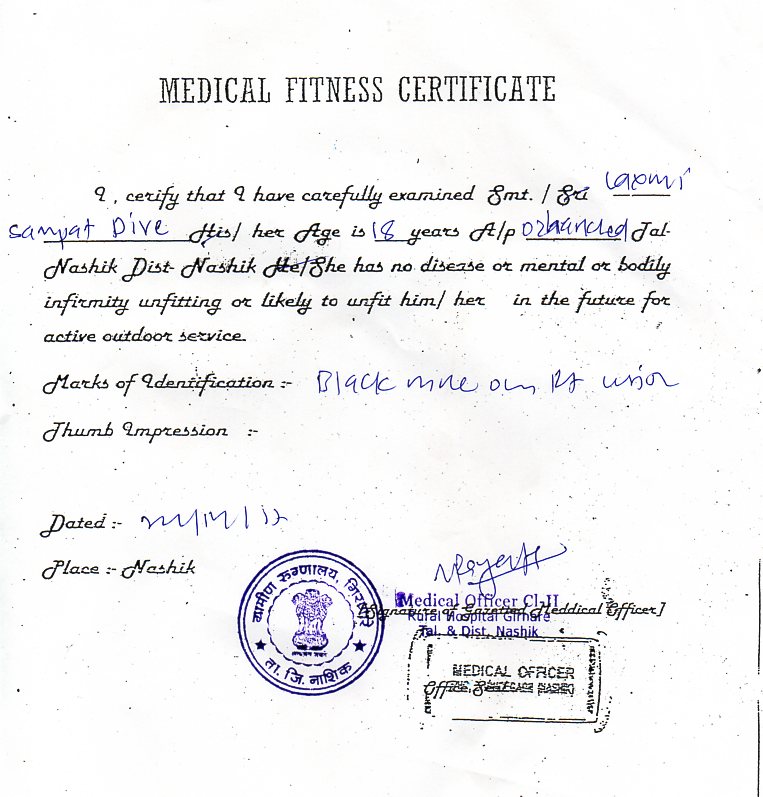 MEDICAL FITNESS CERTIFICATE
I, cerify that I have carefully examined Smt. / Sri Laxmi
Sampat Dive His/ her Age is 18 years A/p Tal-
Nashik Dist- Nashik He/She has no disease or mental or bodily
infirmity unfitting or likely to unfit him/ her in the future for
active outdoor service.
Marks of Identification :- Black mole on Rt
Thumb Impression :-
Dated :-
Place :- Nashik
ग्रामीण रुग्णालय, गिरणारे
ता. जि. नाशिक
Medical Officer Cl-II
[Signature of Gazetted Meddical Officer]
Rural Hospital Girnare
Tal. & Dist. Nashik
MEDICAL OFFICER